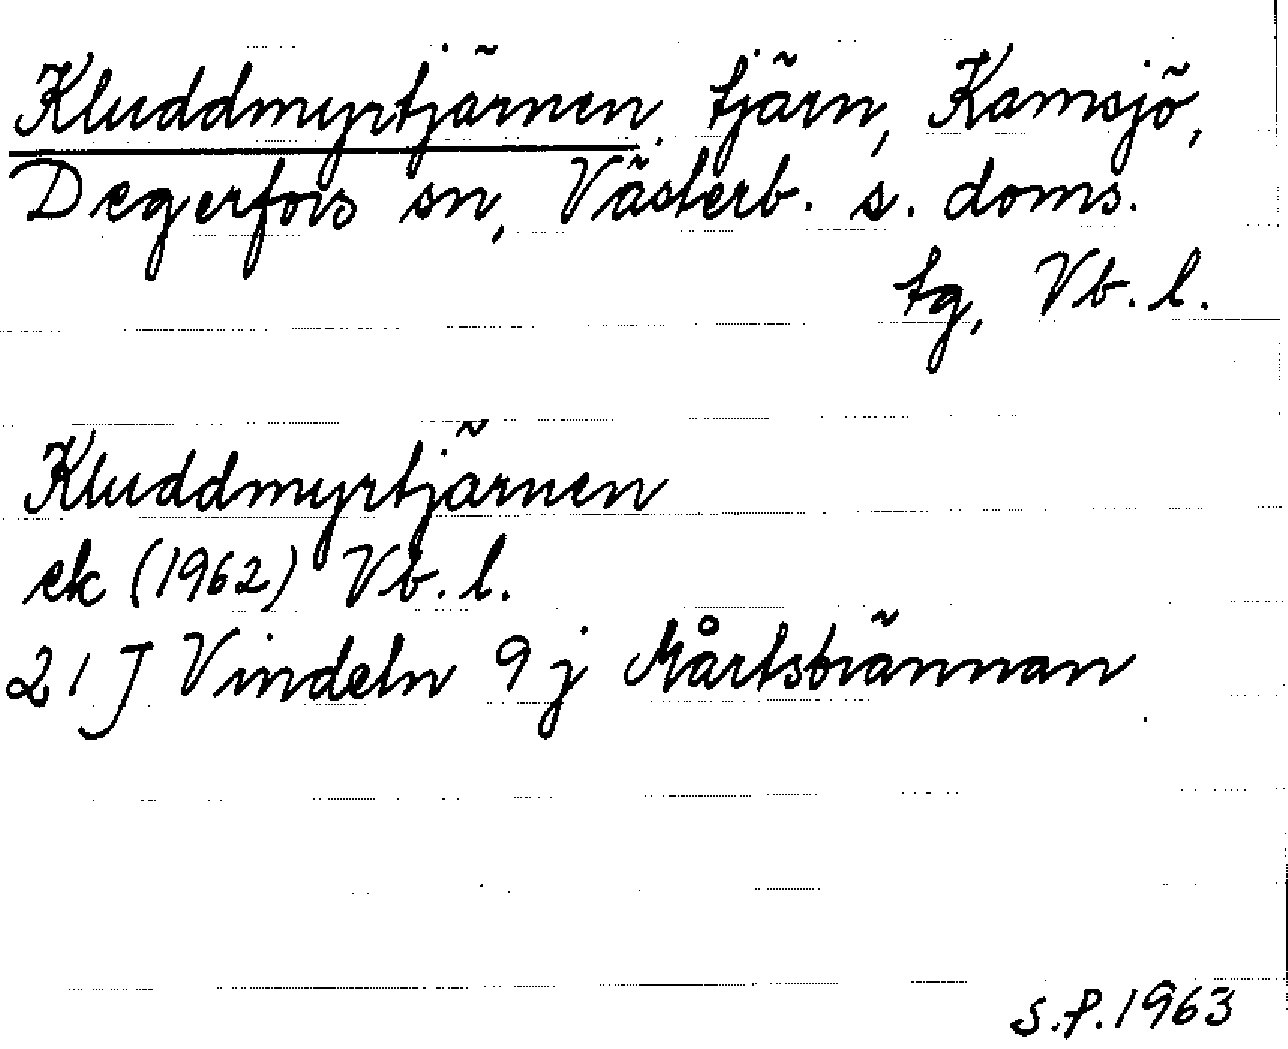 Kluddmyrtjärnen, tjärn, Kamsjö,
Degerfors sn, Västerb. s. doms.
tg, Vb. l.
Kluddmyrtjärnen
ek (1962) Vb. l.
21 J Vindeln 9 j Mårtsbrännan
S.P. 1963